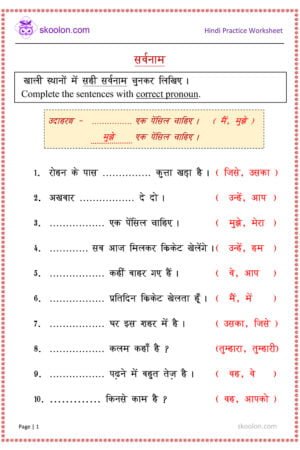 skoolon.com
Hindi Practice Worksheet
सर्वनाम
खाली स्थानों में सही सर्वनाम चुनकर लिखिए ।
Complete the sentences with correct pronoun.
उदाहरण - ............... एक पेंसिल चाहिए । ( मैं, मुझे )
मुझे एक पेंसिल चाहिए ।
1. रोहन के पास ............... कुत्ता खड़ा है । ( जिसे, उसका )
2. अखबार ............... दे दो । ( उन्हें, आप )
3. ............... एक पेंसिल चाहिए । ( मुझे, मेरा )
4. ............ सब आज मिलकर क्रिकेट खेलेंगे । ( उन्हें, हम )
5. ............... कहीं बाहर गए हैं । ( वे, आप )
6. ............... प्रतिदिन क्रिकेट खेलता हूँ । ( मैं, में )
7. ............... घर इस शहर में है । ( उसका, जिसे )
8. ............... कलम कहाँ है ? (तुम्हारा, तुम्हारी)
9. ............... पढ़ने में बहुत तेज़ है । ( वह, वे )
10. ............... किनसे काम है ? ( वह, आपको )
Page | 1
skoolon.com